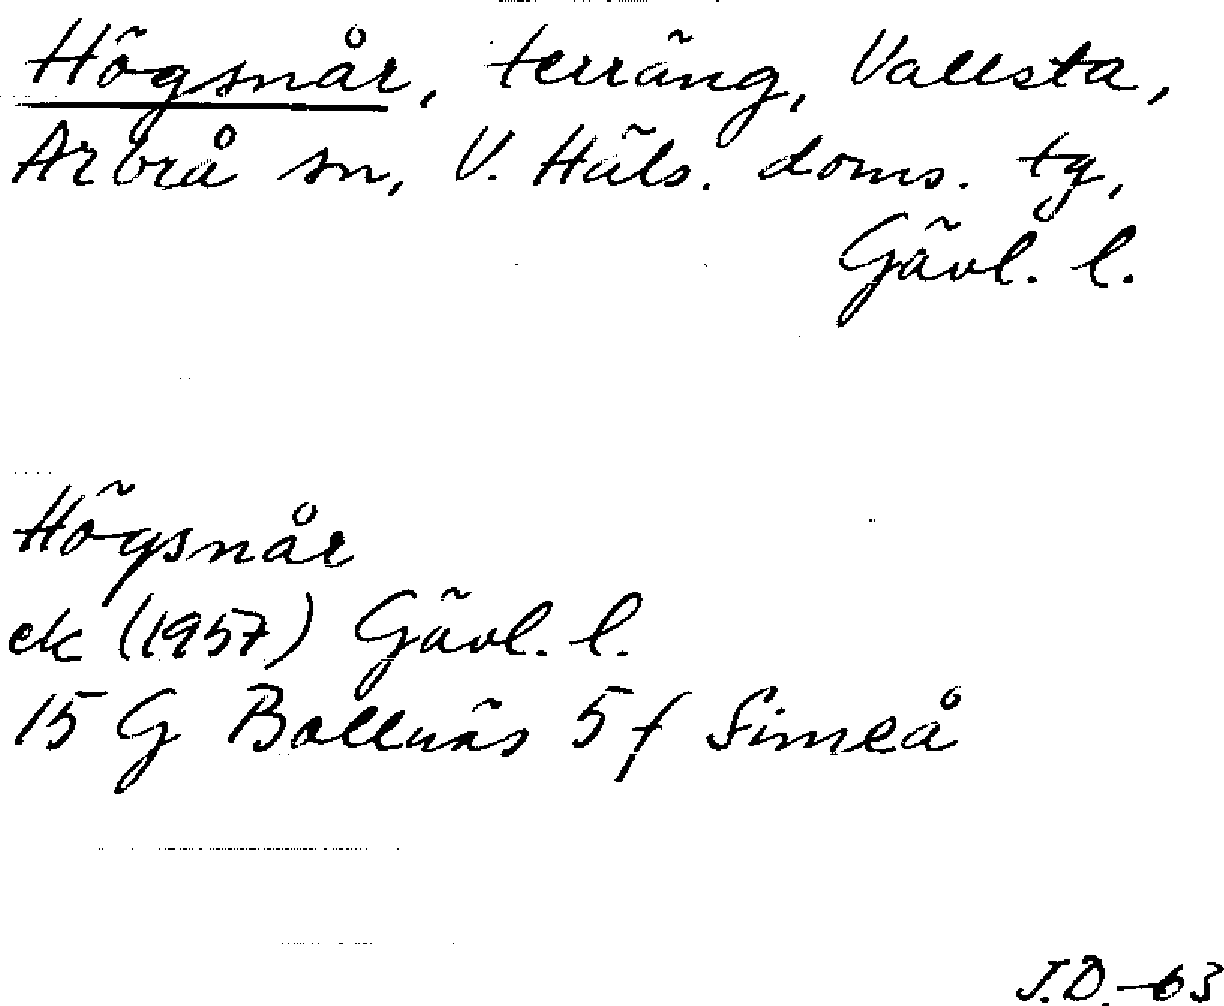 Högsnår, terräng, Vallsta,
Arbrå sn, V. Häls. doms. tg,
Gävl. l.
Högsnår
ek (1957) Gävl. l.
15 G Bollnäs 5 f Simeå
J.D. -63